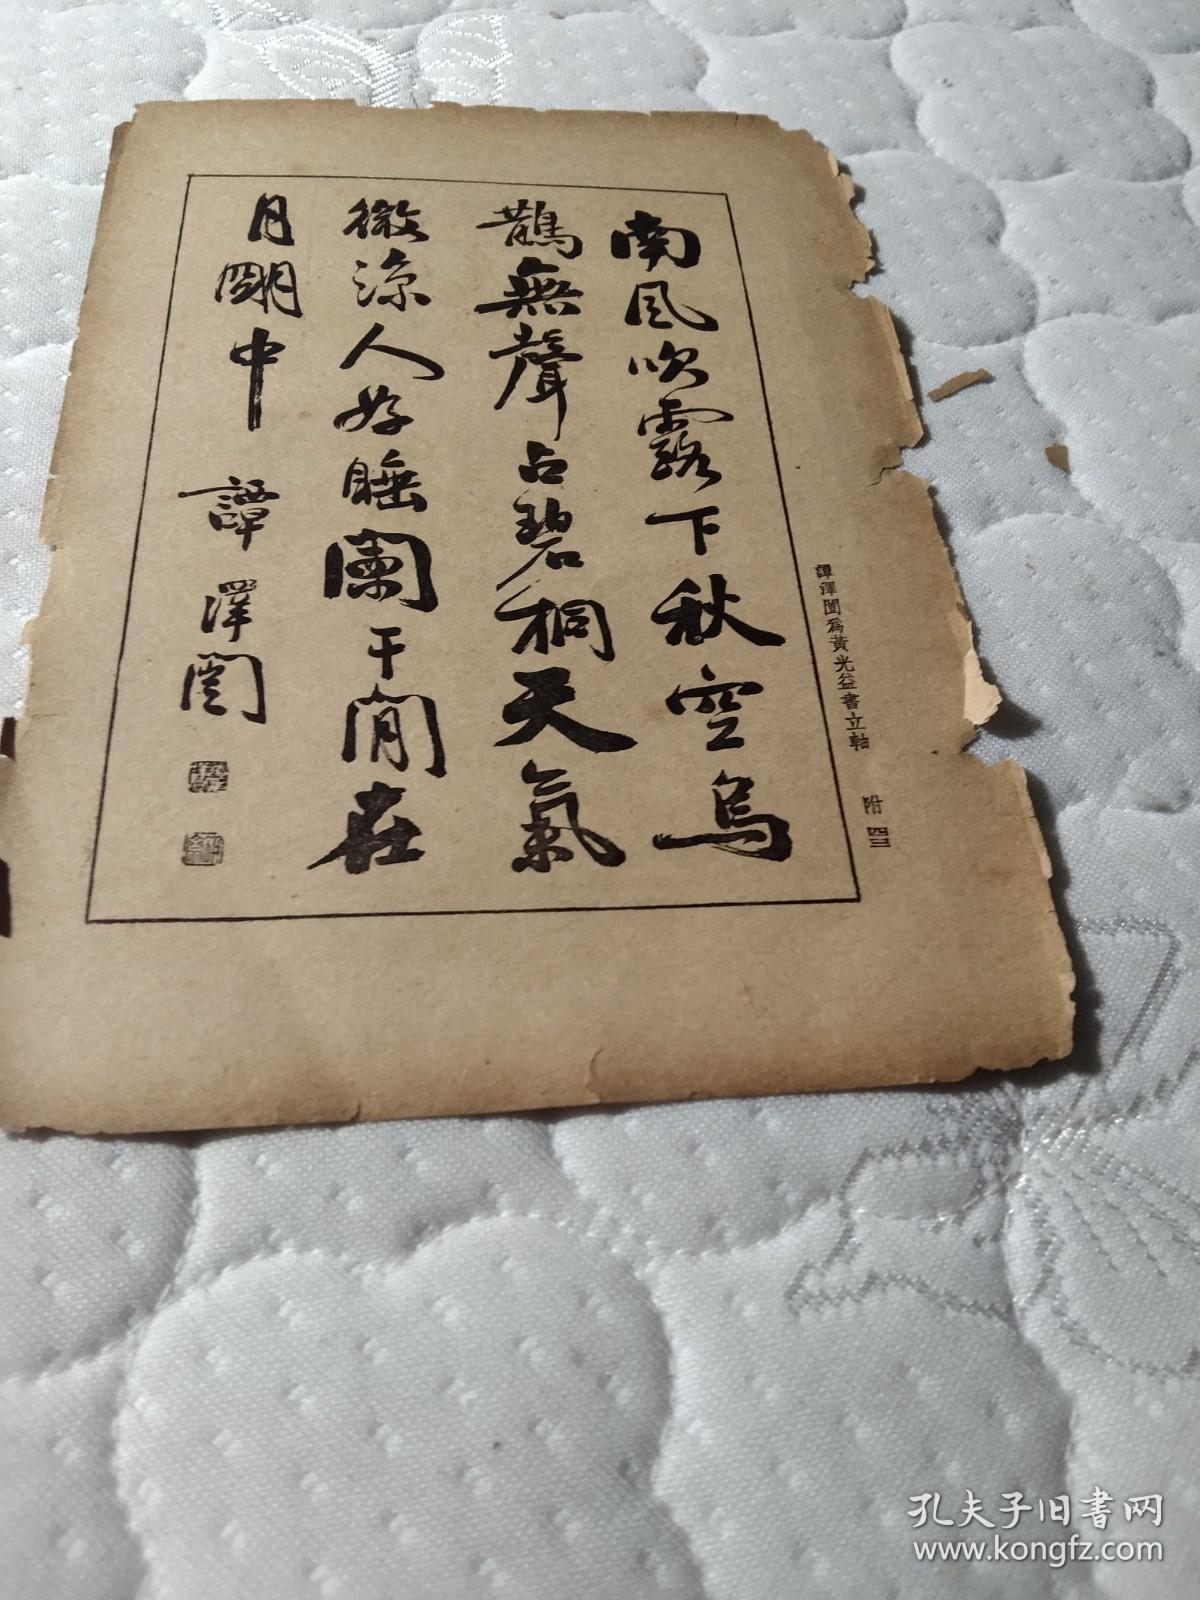 南風吹露下秋空烏
鵲無聲占碧桐天氣
微涼人好睡闌干閒在
月明中
譚澤闓
譚澤闓為黃光益書立軸
附四三
孔夫子旧书网
www.kongfz.com